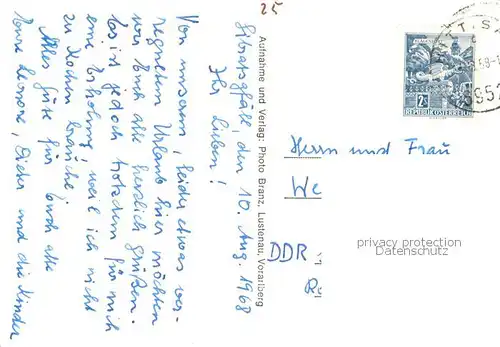 25
Gibratsgfäll, den 10. Aug. 1968
Ihr Lieben!
Von unserem, leider etwas ver-
regneten Urlaub hier möchten
wir Euch alle herzlich grüßen.
Es ist jedoch trotzdem für mich
eine Erholung, weil ich nicht
zu kochen brauche.
Alles Gute für Euch alle
Eure Leonore, Dieter und die Kinder
Aufnahme und Verlag: Photo Branz, Lustenau, Vorarlberg
2S
REPUBLIK ÖSTERREICH
6952
Herrn und Frau
We
DDR
privacy protection
Datenschutz